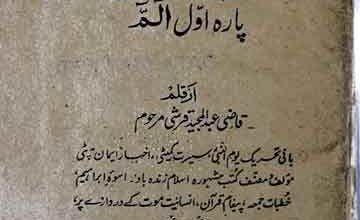 پارہ اوّل الٓمّٓ
از قلم
قاضی عبدالمجید قرشی مرحوم
بانی تحریک یوم النبیؐ، سیرت کمیٹی، اخبار ایمان پٹی
مؤلف و مصنف کتب مشہورہ اسلام زندہ باد، اسوۂ ابراہیمؑ
خطبات جمعہ، پیغام قرآن، انسانیت موت کے دروازے پر،